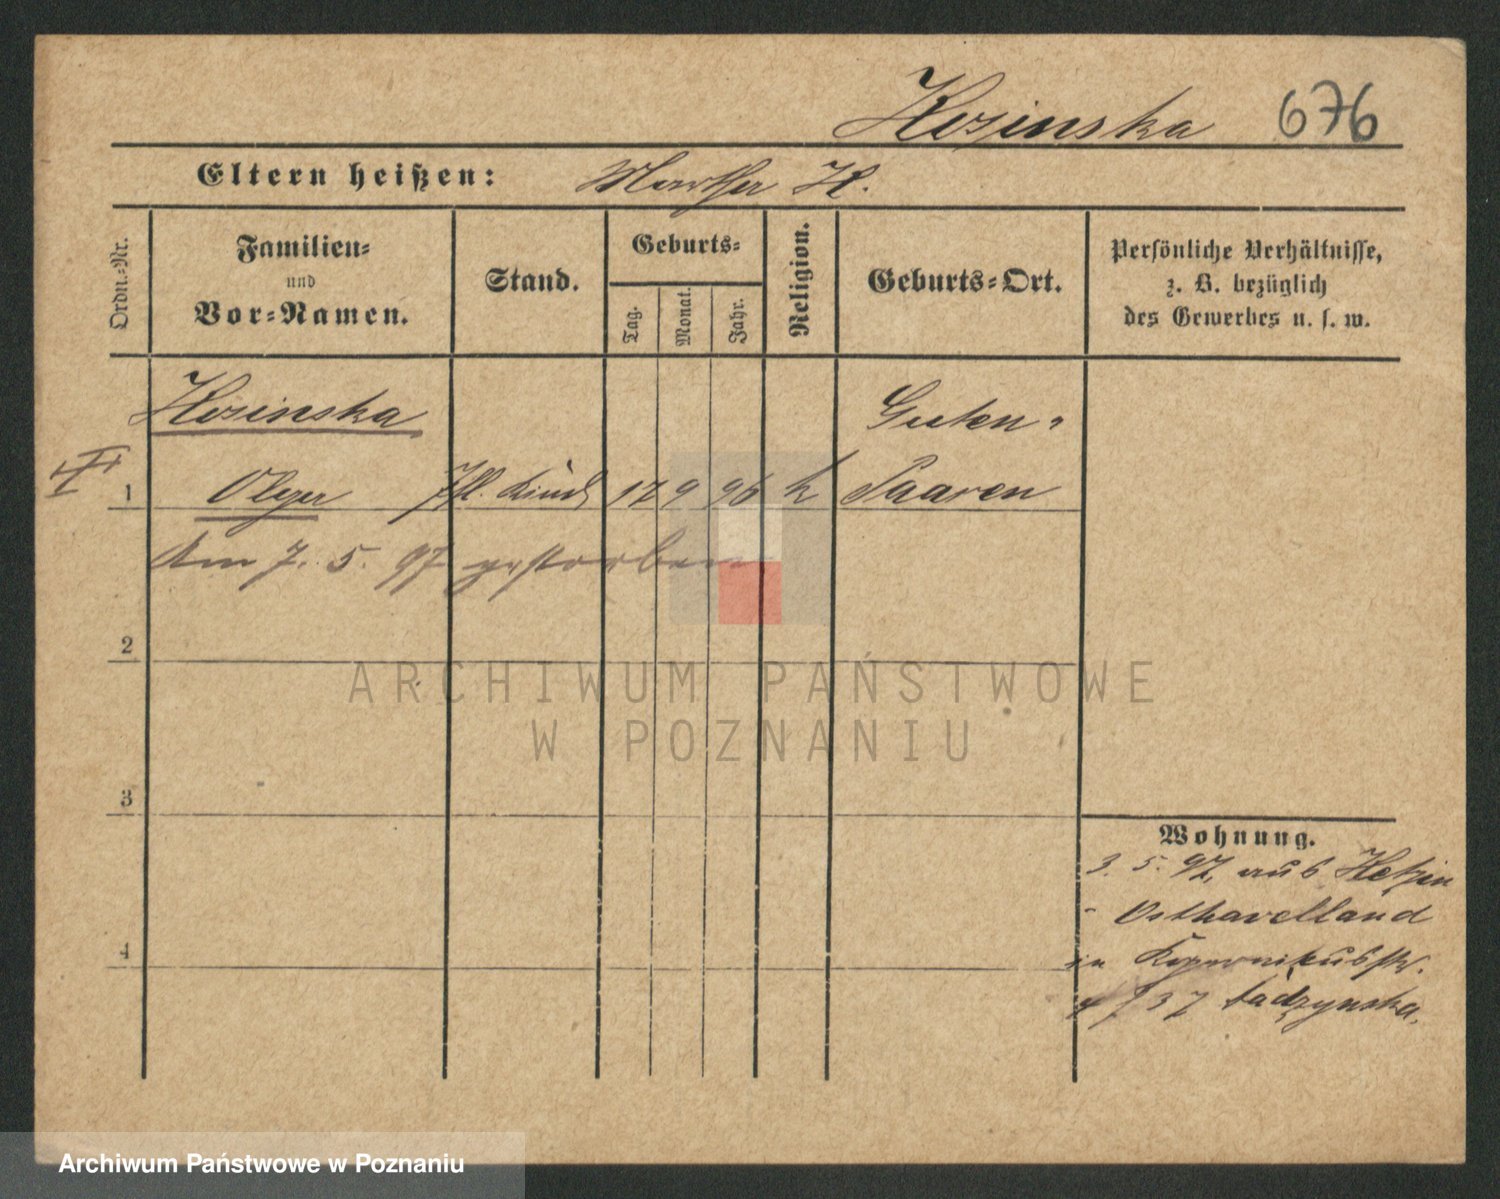 Kosinska 676
Eltern heißen: Martha K.
Ordn.-Nr.
Familien-
und
Vor-Namen.
Stand.
Geburts-
Tag.
Monat.
Jahr.
Religion.
Geburts-Ort.
Persönliche Verhältnisse,
z. B. bezüglich
des Gewerbes u. s. w.
Kosinska Guten-
1 Olga Pfl. Kind 17 9 96 k Paaren
Am 7. 5. 97 gestorben
2
3
4
Wohnung.
3. 5. 97 aus Ketzin
- Osthavelland
in Kopernikusstr.
37 Ladzynska.
ARCHIWUM PAŃSTWOWE
W POZNANIU
Archiwum Państwowe w Poznaniu